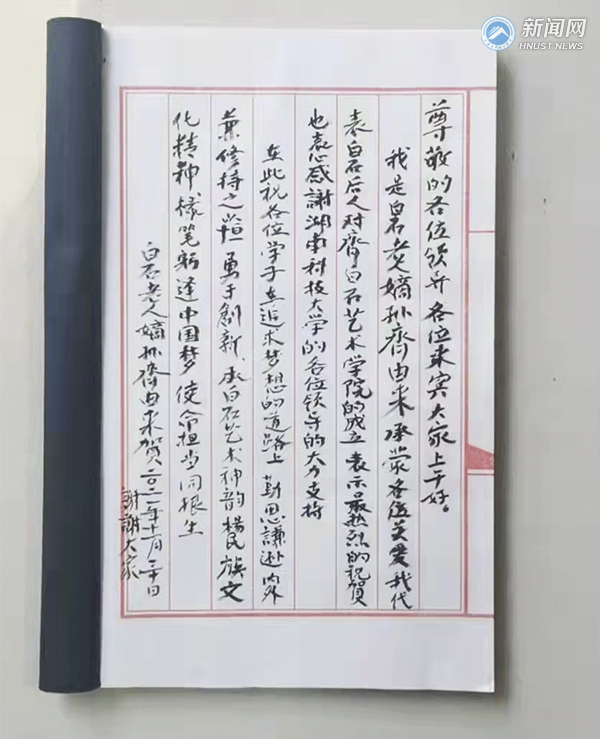 新闻网
HNUST NEWS
尊敬的各位领导 各位来宾大家上午好。
我是白石老人嫡孙齊由来 承蒙各位关爱 我代
表白石后人对齊白石艺术学院的成立 表示最热烈的祝贺
也衷心感謝湖南科技大学的各位领导的大力支持
在此祝各位学子 在追求梦想的道路上 勤思謙逊 内外
兼修持之以恒 勇于創新 承白石艺术神韵 民族文
化精神 笔 中国梦 使命担当同根生
白石老人嫡孙齊由来賀 二〇二一年十一月二十日
謝謝大家